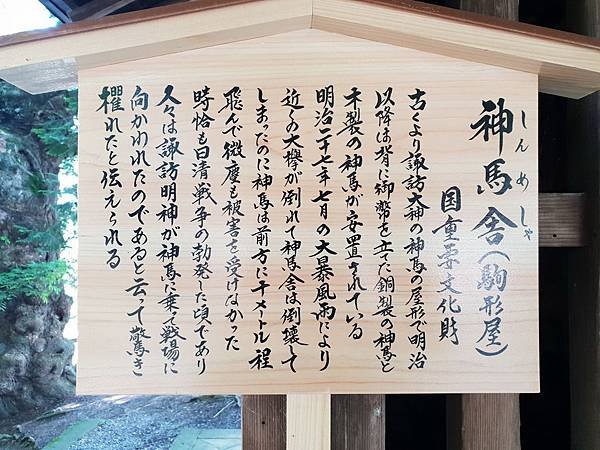 神馬舎（駒形屋）
しんめしゃ
国重要文化財
古くより諏訪大神の神馬の屋形で明治
以降は背に御幣を立てた銅製の神馬と
木製の神馬が安置されている
明治二十七年七月の大暴風雨により
近くの大欅が倒れて神馬舎は倒壊して
しまったのに神馬は前方に十メートル程
飛んで微塵も被害を受けなかった
時恰も日清戦争の勃発した頃であり
人々は諏訪明神が神馬に乗って戦場に
向かわれたのであると云って驚き
懼れたと伝えられる